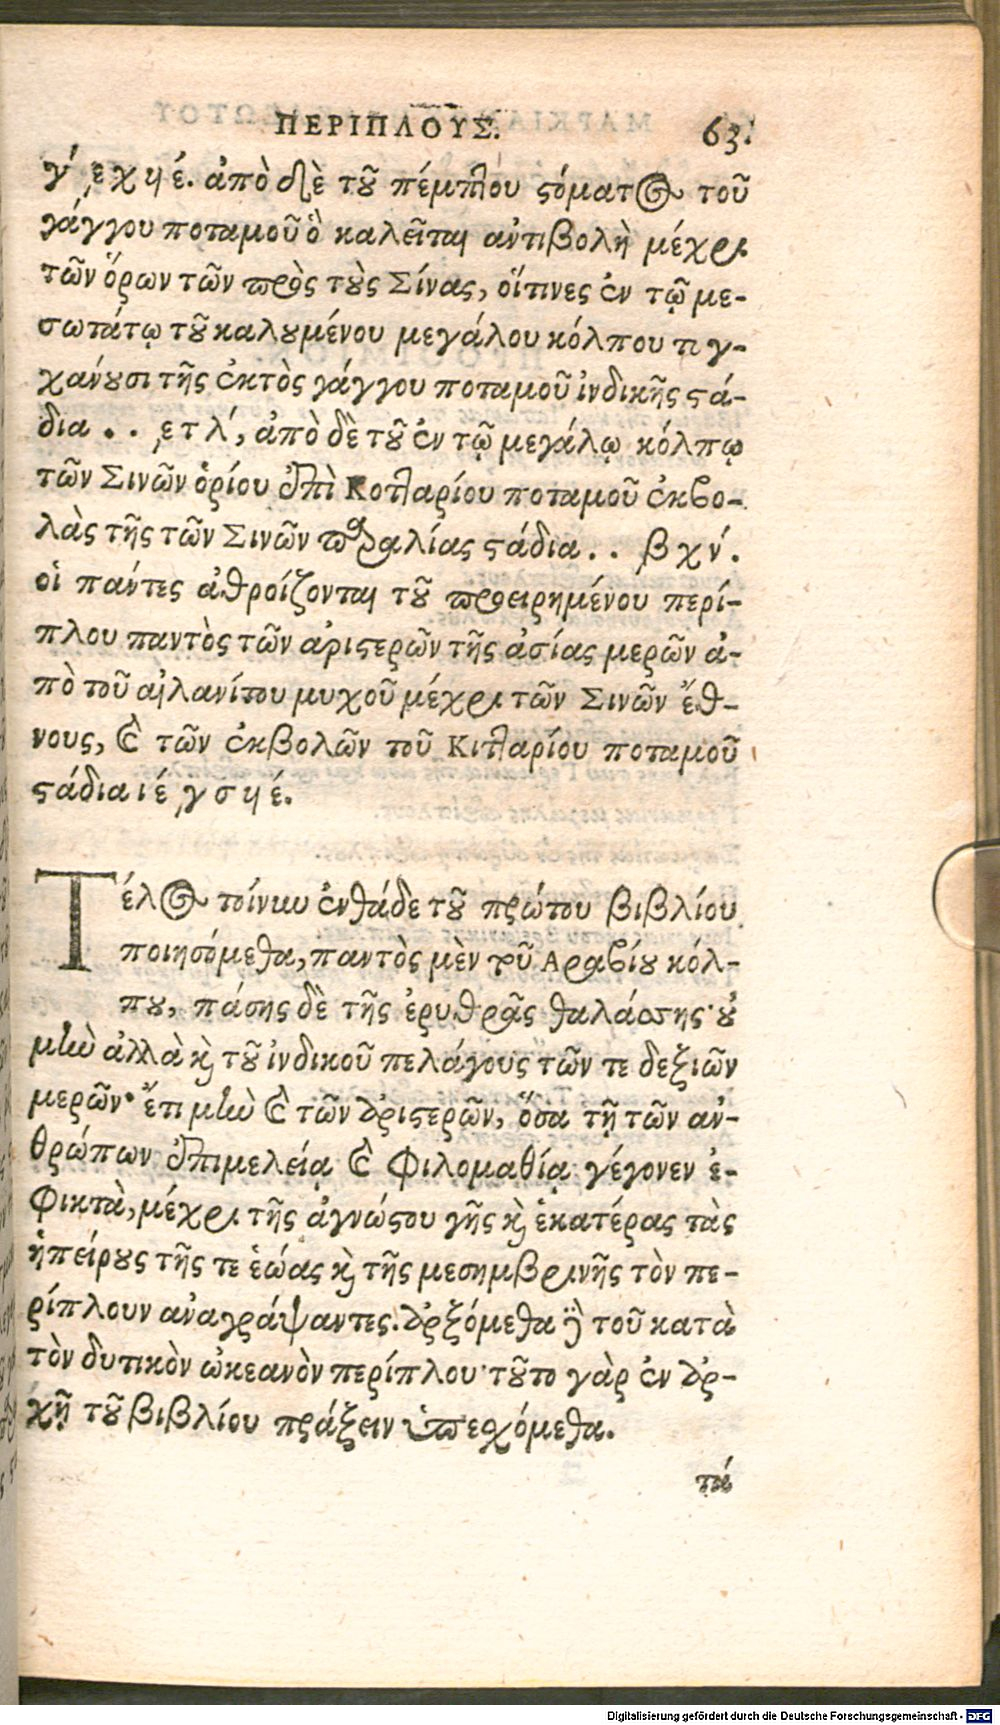 ΠΕΡΙΠΛΟΥΣ. 63.
γ ͵εχϟέ. ἀπὸ δὲ τοῦ πέμπτου στόματος τοῦ
γάγγου ποταμοῦ ὃ καλεῖται ἀντιβολὴ μέχρι
τῶν ὅρων τῶν πρὸς τοὺς Σίνας, οἵτινες ἐν τῷ με-
σωτάτῳ τοῦ καλουμένου μεγάλου κόλπου τιγ-
χάνουσι τῆς ἐκτὸς γάγγου ποταμοῦ ἰνδικῆς στά-
δια . . ͵ετλ´, ἀπὸ δὲ τοῦ ἐν τῷ μεγάλῳ κόλπῳ
τῶν Σινῶν ὁρίου ἐπὶ Κοτταρίου ποταμοῦ ἐκβο-
λὰς τῆς τῶν Σινῶν παραλίας στάδια . . βχν´.
οἱ πάντες ἀθροίζονται τοῦ προειρημένου περί-
πλου παντὸς τῶν ἀριστερῶν τῆς ἀσίας μερῶν ἀ-
πὸ τοῦ αἰλανίτου μυχοῦ μέχρι τῶν Σινῶν ἔθ-
νους, καὶ τῶν ἐκβολῶν τοῦ Κιτταρίου ποταμοῦ
στάδια ιέ ͵γσϟέ.
Τέλος τοίνυν ἐνθάδε τοῦ πρώτου βιβλίου
ποιησόμεθα, παντὸς μὲν τοῦ Αραβίου κόλ-
που, πάσης δὲ τῆς ἐρυθρᾶς θαλάσσης· οὐ
μὴν ἀλλὰ καὶ τοῦ ἰνδικοῦ πελάγους τῶν τε δεξιῶν
μερῶν· ἔτι μὴν καὶ τῶν ἀριστερῶν, ὅσα τῇ τῶν ἀν-
θρώπων ἐπιμελείᾳ καὶ φιλομαθίᾳ γέγονεν ἐ-
φικτὰ, μέχρι τῆς ἀγνώστου γῆς καὶ ἑκατέρας τὰς
ἠπείρους τῆς τε ἑώας καὶ τῆς μεσημβρινῆς τὸν πε-
ρίπλουν ἀναγράψαντες. ἀρξόμεθα δὲ τοῦ κατὰ
τὸν δυτικὸν ὠκεανὸν περίπλου· τοῦτο γὰρ ἐν ἀρ-
χῇ τοῦ βιβλίου πράξειν ὑπεχόμεθα.
τά
Digitalisierung gefördert durch die Deutsche Forschungsgemeinschaft - DFG